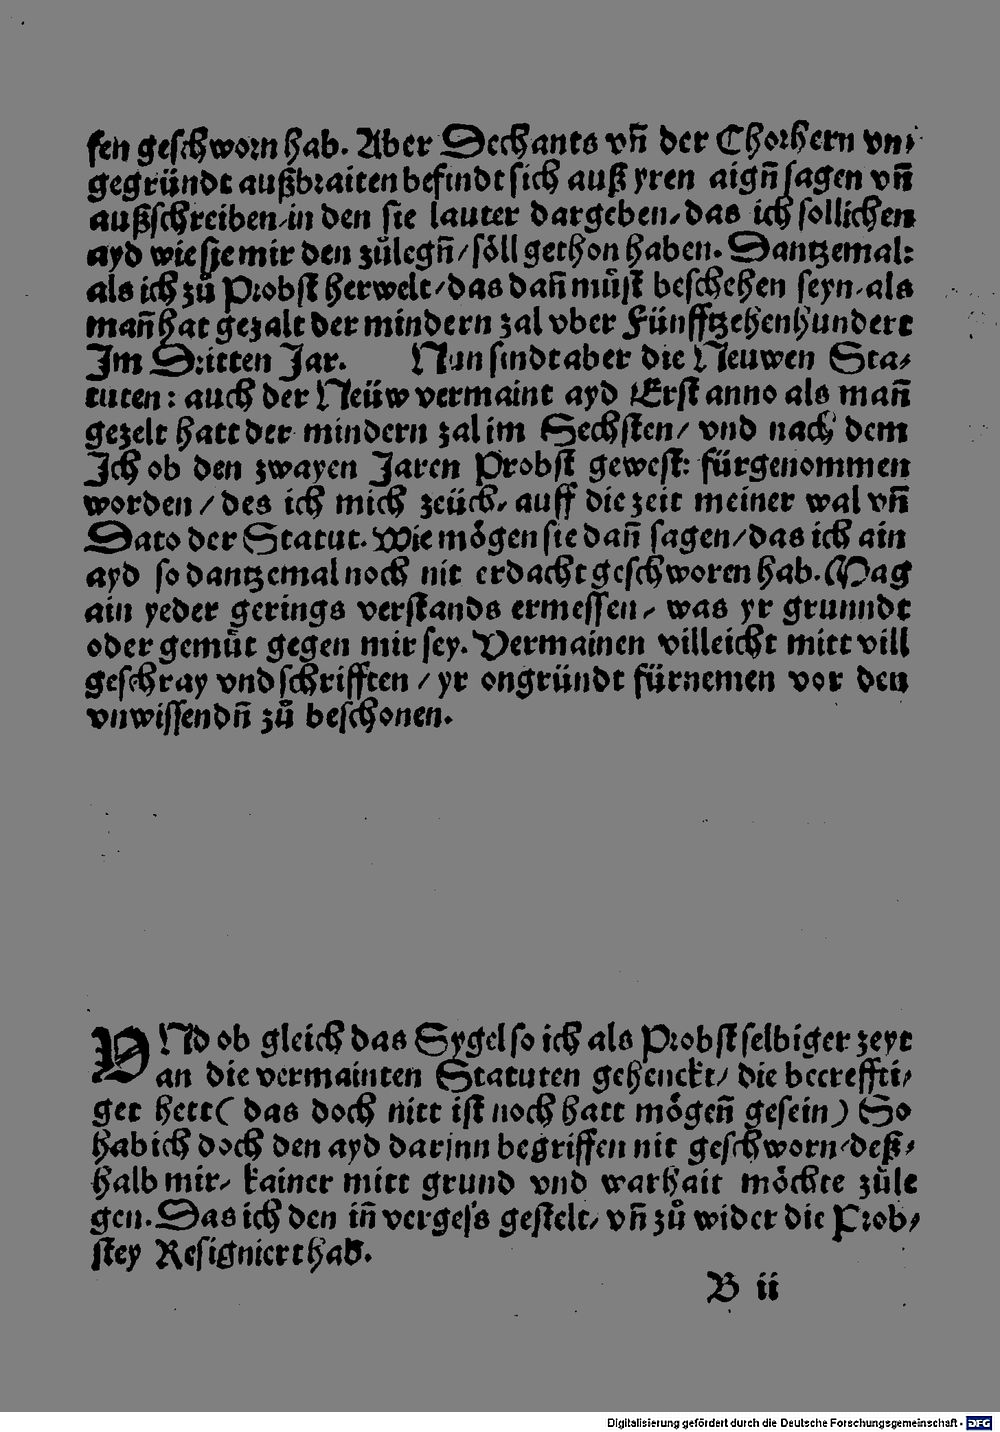 fen geschworn hab. Aber Dechants vn̄ der Chorhern vn⸗
gegründt außbraiten befindt sich auß yren aign̄ sagen vn̄
außschreiben/in den sie lauter dargeben/das ich sollichen
ayd wie sie mir den zůlegn̄/söll gethon haben. Dantzemal:
als ich zů Probst herwelt/das dan̄ můst beschehen seyn/als
man̄ hat gezalt der mindern zal vber Fünfftzehenhundert
Im Dritten Jar. Nun sindt aber die Neuwen Sta⸗
tuten: auch der Neüw vermaint ayd Erst anno als man̄
gezelt hatt der mindern zal im Sechsten/ vnd nach dem
Ich ob den zwayen Jaren Probst gewest: fürgenommen
worden/des ich mich zeüch/auff die zeit meiner wal vn̄
Dato der Statut. Wie mögen sie dan̄ sagen/das ich ain
ayd so dantzemal noch nit erdacht geschworen hab. Mag
ain yeder gerings verstands ermessen/ was yr grunndt
oder gemüt gegen mir sey. Vermainen villeicht mitt vill
geschray vnd schrifften/yr ongründt fürnemen vor den
vnwissendn̄ zů beschonen.
VNd ob gleich das Sygel so ich als Probst selbiger zeyt
an die vermainten Statuten gehenckt/ die becreffti⸗
get hett( das doch nitt ist noch hatt mögen̄ gesein) So
hab ich doch den ayd darjnn begriffen nit geschworn/deß⸗
halb mir/ kainer mitt grund vnd warhait möchte zůle
gen. Das ich den in̄ vergess gestelt/ vn̄ zů wider die Prob⸗
stey Resigniert hab.
B ii
Digitalisierung gefördert durch die Deutsche Forschungsgemeinschaft - DFG